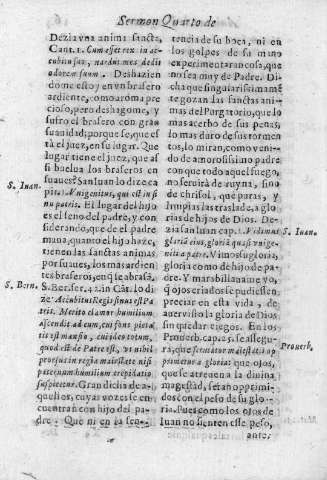 Sermon Quarto de
Dezia vna anima sancta,
Cant. 1. Cum esset rex in ac-
cubitu suo, nardus mea dedit
odorem suum. Deshazien
dome estoy en vn brasero
ardiente, como aroma pre
cioso, pero deshagome, y
sufro el brasero con gran
suauidad; porque se, que es
tà el juez, en su lugar. Que
lugar tiene el juez, que as-
si buelua los braseros en
suaues? San Iuan lo dize ca
S. Iuan.
pit. 1. Vnigenitus, qui est in si
nu patris. El lugar del hijo
es el seno del padre, y con
siderando, que de el padre
mana, quanto el hijo haze,
tienen las sanctas animas
por suaues, los mas ardien-
tes braseros, en q̃ se abrasã.
S. Bern.
S. Ber. ser. 42. in Cãt. lo di
ze: Accubitus Regis sinus est Pa
tris. Merito clamor humilium
ascendit ad eum, cui fons pieta
tis est mansio, cui ideo totum,
quod est de Patre est, vt nihil
prorsus in regia maiestate nisi
paternum humilium trepidatio
suspicetur. Gran dicha de a-
quellos, cuyas vozes se en-
cuentran con hijo del pa-
dre. Que ni en la sen-
tencia de su boca, ni en
los golpes de su mano
experimentaran cosa, que
no sea muy de Padre. Di-
cha que singularissimamẽ
te gozan las sanctas ani-
mas del Purgatorio, que lo
mas acerbo de sus penas,
lo mas duro de sus tormen
tos, lo miran, como venido
de amorosissimo padre
con que todo aquel fuego,
no seruirà de ruyna, sino
de chrisol, que paras, y
limpias las traslade, a glo
rias de hijos de Dios. De-
zia san Iuan cap. 1. Vidimus
S. Iuan.
gloriã eius, gloriã quasi vnige-
niti a patre. Vimos su gloria,
gloria como de hijo de pa-
dre. Y marabillauame yo,
q̃ ojos criados se pudiessen
preciar en esta vida, de
auer visto la gloria de Dios
sin quedar ciegos. En los
Prouerb. cap. 25. se assegu-
Prouerb,
ra, que scrutator maiestatis op
primetur a gloria: que ojos,
que se atreuen a la diuina
magestad, seràn opprimi-
dos con el peso de su glo-
ria. Pues como los ojos de
Iuan no sienten este peso,
ante.